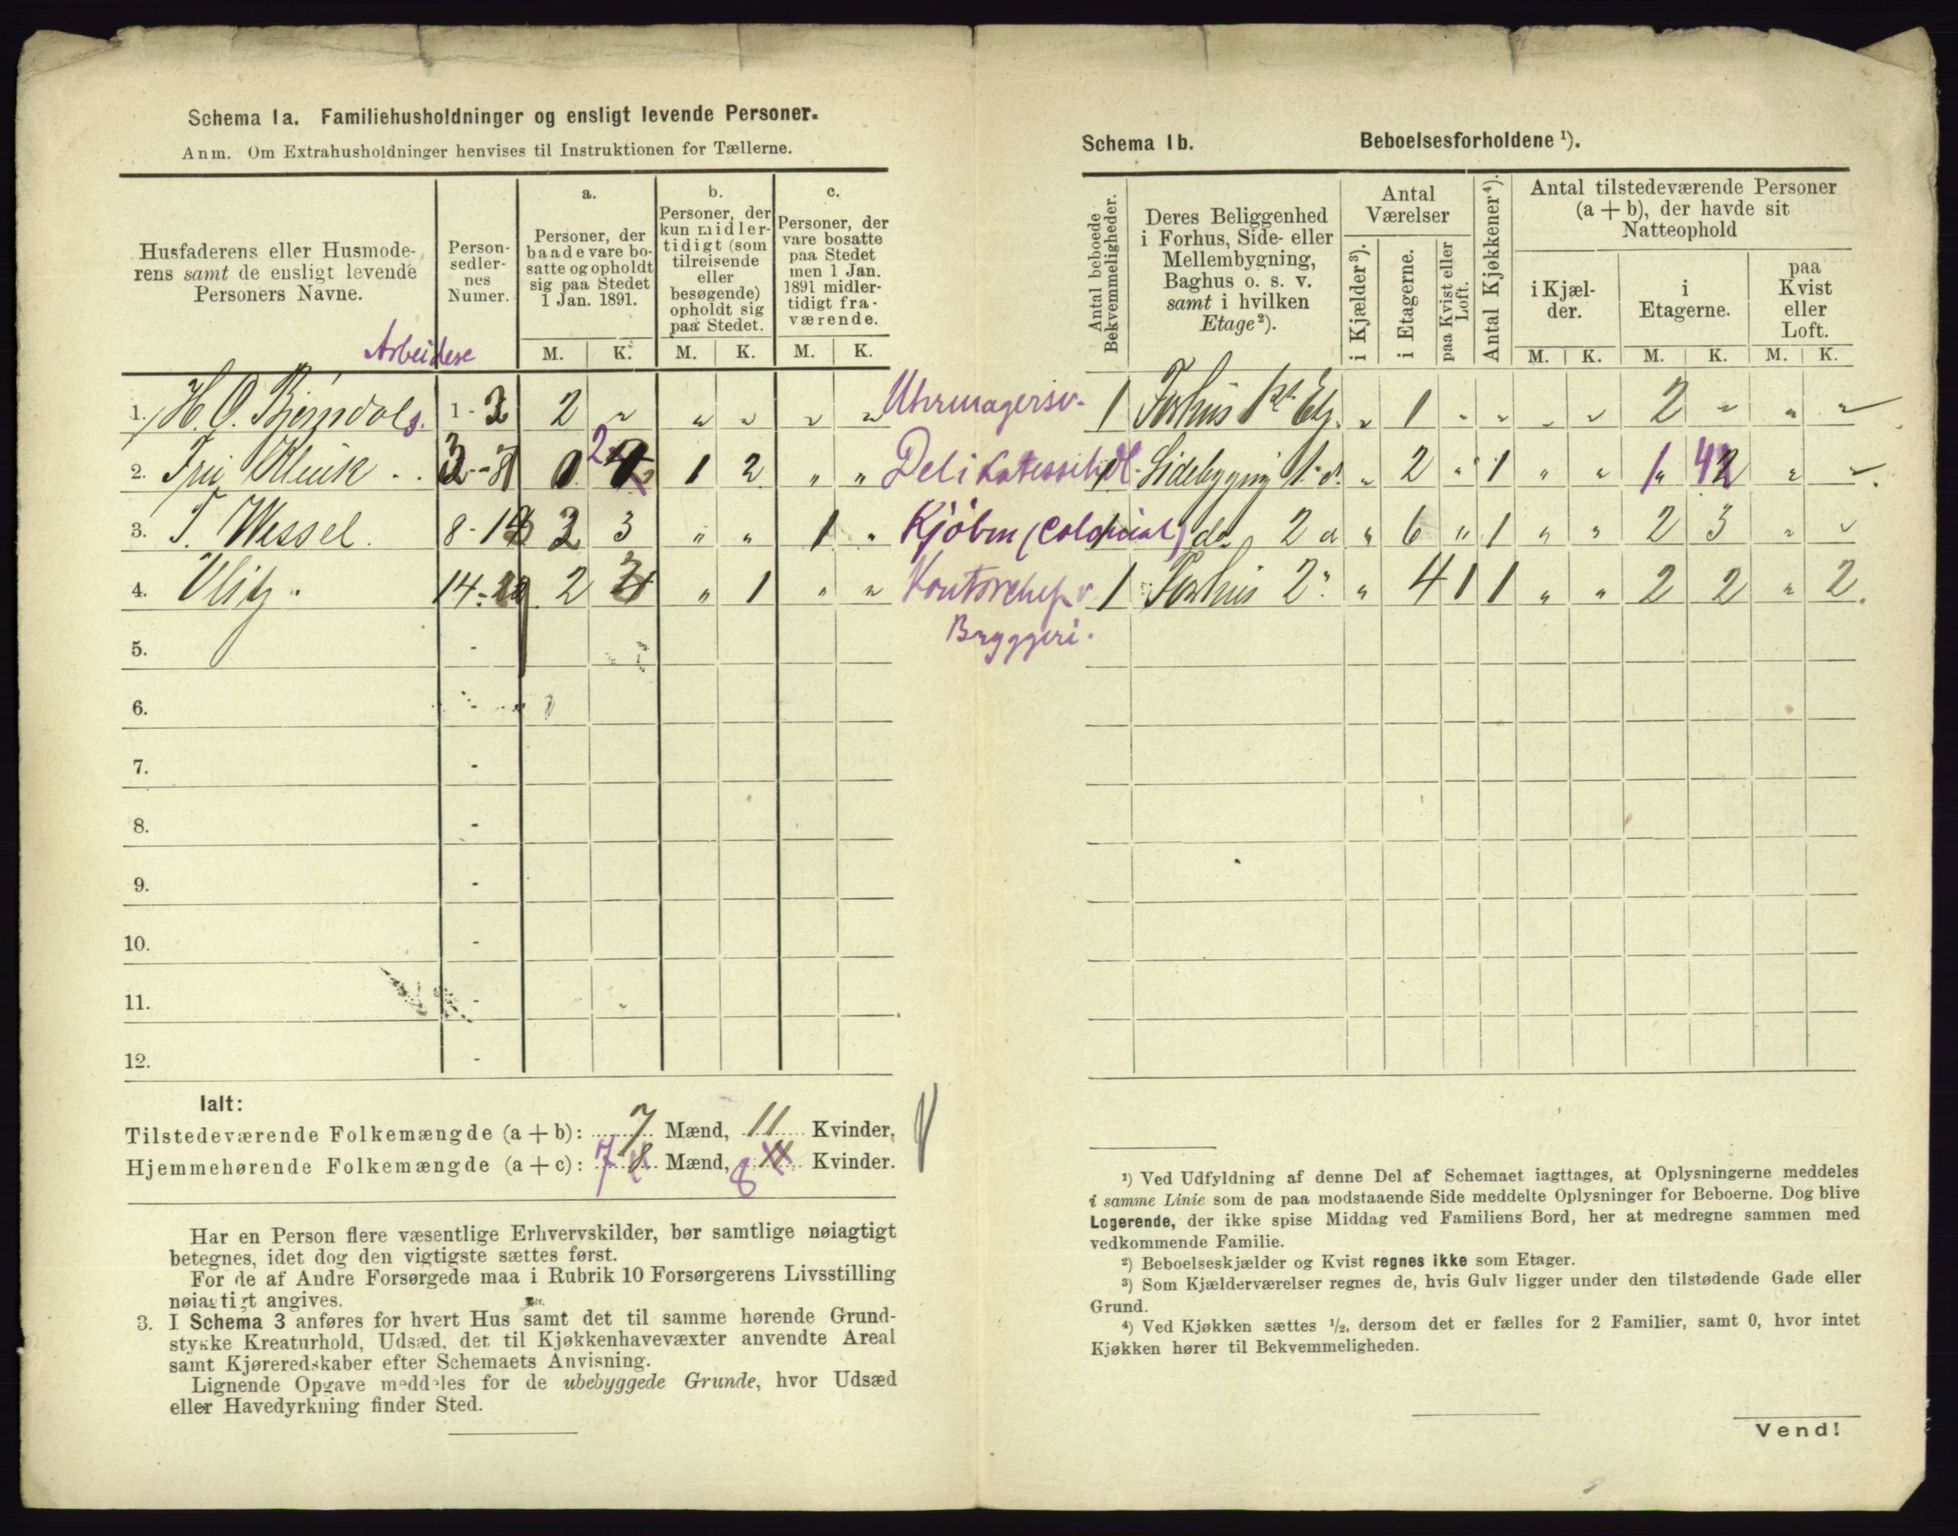 Schema 1a. Familiehusholdninger og ensligt levende Personer.
Anm. Om Extrahusholdninger henvises til Instruktionen for Tællerne.
Husfaderens eller Husmoderens samt de ensligt levende Personers Navne.
Personsedlernes Numer.
a.
Personer, der baade vare bosatte og opholdt sig paa Stedet 1 Jan. 1891.
b.
Personer, der kun midlertidigt (som tilreisende eller besøgende) opholdt sig paa Stedet.
c.
Personer, der vare bosatte paa Stedet men 1 Jan. 1891 midlertidigt fraværende.
M. K. M. K. M. K.
Arbeidere
1. H. O. Bjørndals. 1-2 2 " " " " "
2. 3-8 1 2
3. T. Wessel. 8-13 2 3 " " 1 "
4. 14- 2 " 1 " "
5. -
6. -
7. -
8. -
9. -
10. -
11. -
12. -
Ialt:
Tilstedeværende Folkemængde (a + b): 7 Mænd, 11 Kvinder.
Hjemmehørende Folkemængde (a + c): 7 8 Mænd, 8 11 Kvinder.
Har en Person flere væsentlige Erhvervskilder, bør samtlige nøiagtigt
betegnes, idet dog den vigtigste sættes først.
For de af Andre Forsørgede maa i Rubrik 10 Forsørgerens Livsstilling
nøiagtigt angives.
3. I Schema 3 anføres for hvert Hus samt det til samme hørende Grund-
stykke Kreaturhold, Udsæd, det til Kjøkkenhavevæxter anvendte Areal
samt Kjøreredskaber efter Schemaets Anvisning.
Lignende Opgave meddeles for de ubebyggede Grunde, hvor Udsæd
eller Havedyrkning finder Sted.
Schema 1b. Beboelsesforholdene ¹).
Antal beboede Bekvemmeligheder.
Deres Beliggenhed i Forhus, Side- eller Mellembygning, Baghus o. s. v. samt i hvilken Etage²).
Antal Værelser
i Kjælder³).
i Etagerne.
paa Kvist eller Loft.
Antal Kjøkkener⁴).
Antal tilstedeværende Personer (a + b), der havde sit Natteophold
i Kjælder.
i Etagerne.
paa Kvist eller Loft.
M. K. M. K. M. K.
Uhrmagersv. 1 Forhus 1st Etg. " 1 " " " " 2 " " "
Delikatessehdl. 1 Sidebygning 1. d. " 2 " 1 " " 1 4 " "
Kjøbm (Colonial) 1 do 2 d " 6 " 1 " " 2 3 " "
Kontorchef v. 1 Forhus 2" " 4 1 1 " " 2 2 " 2.
Bryggeri.
¹) Ved Udfyldning af denne Del af Schemaet iagttages, at Oplysningerne meddeles
i samme Linie som de paa modstaaende Side meddelte Oplysninger for Beboerne. Dog blive
Logerende, der ikke spise Middag ved Familiens Bord, her at medregne sammen med
vedkommende Familie.
²) Beboelseskjælder og Kvist regnes ikke som Etager.
³) Som Kjælderværelser regnes de, hvis Gulv ligger under den tilstødende Gade eller
Grund.
⁴) Ved Kjøkken sættes ½, dersom det er fælles for 2 Familier, samt 0, hvor intet
Kjøkken hører til Bekvemmeligheden.
Vend!